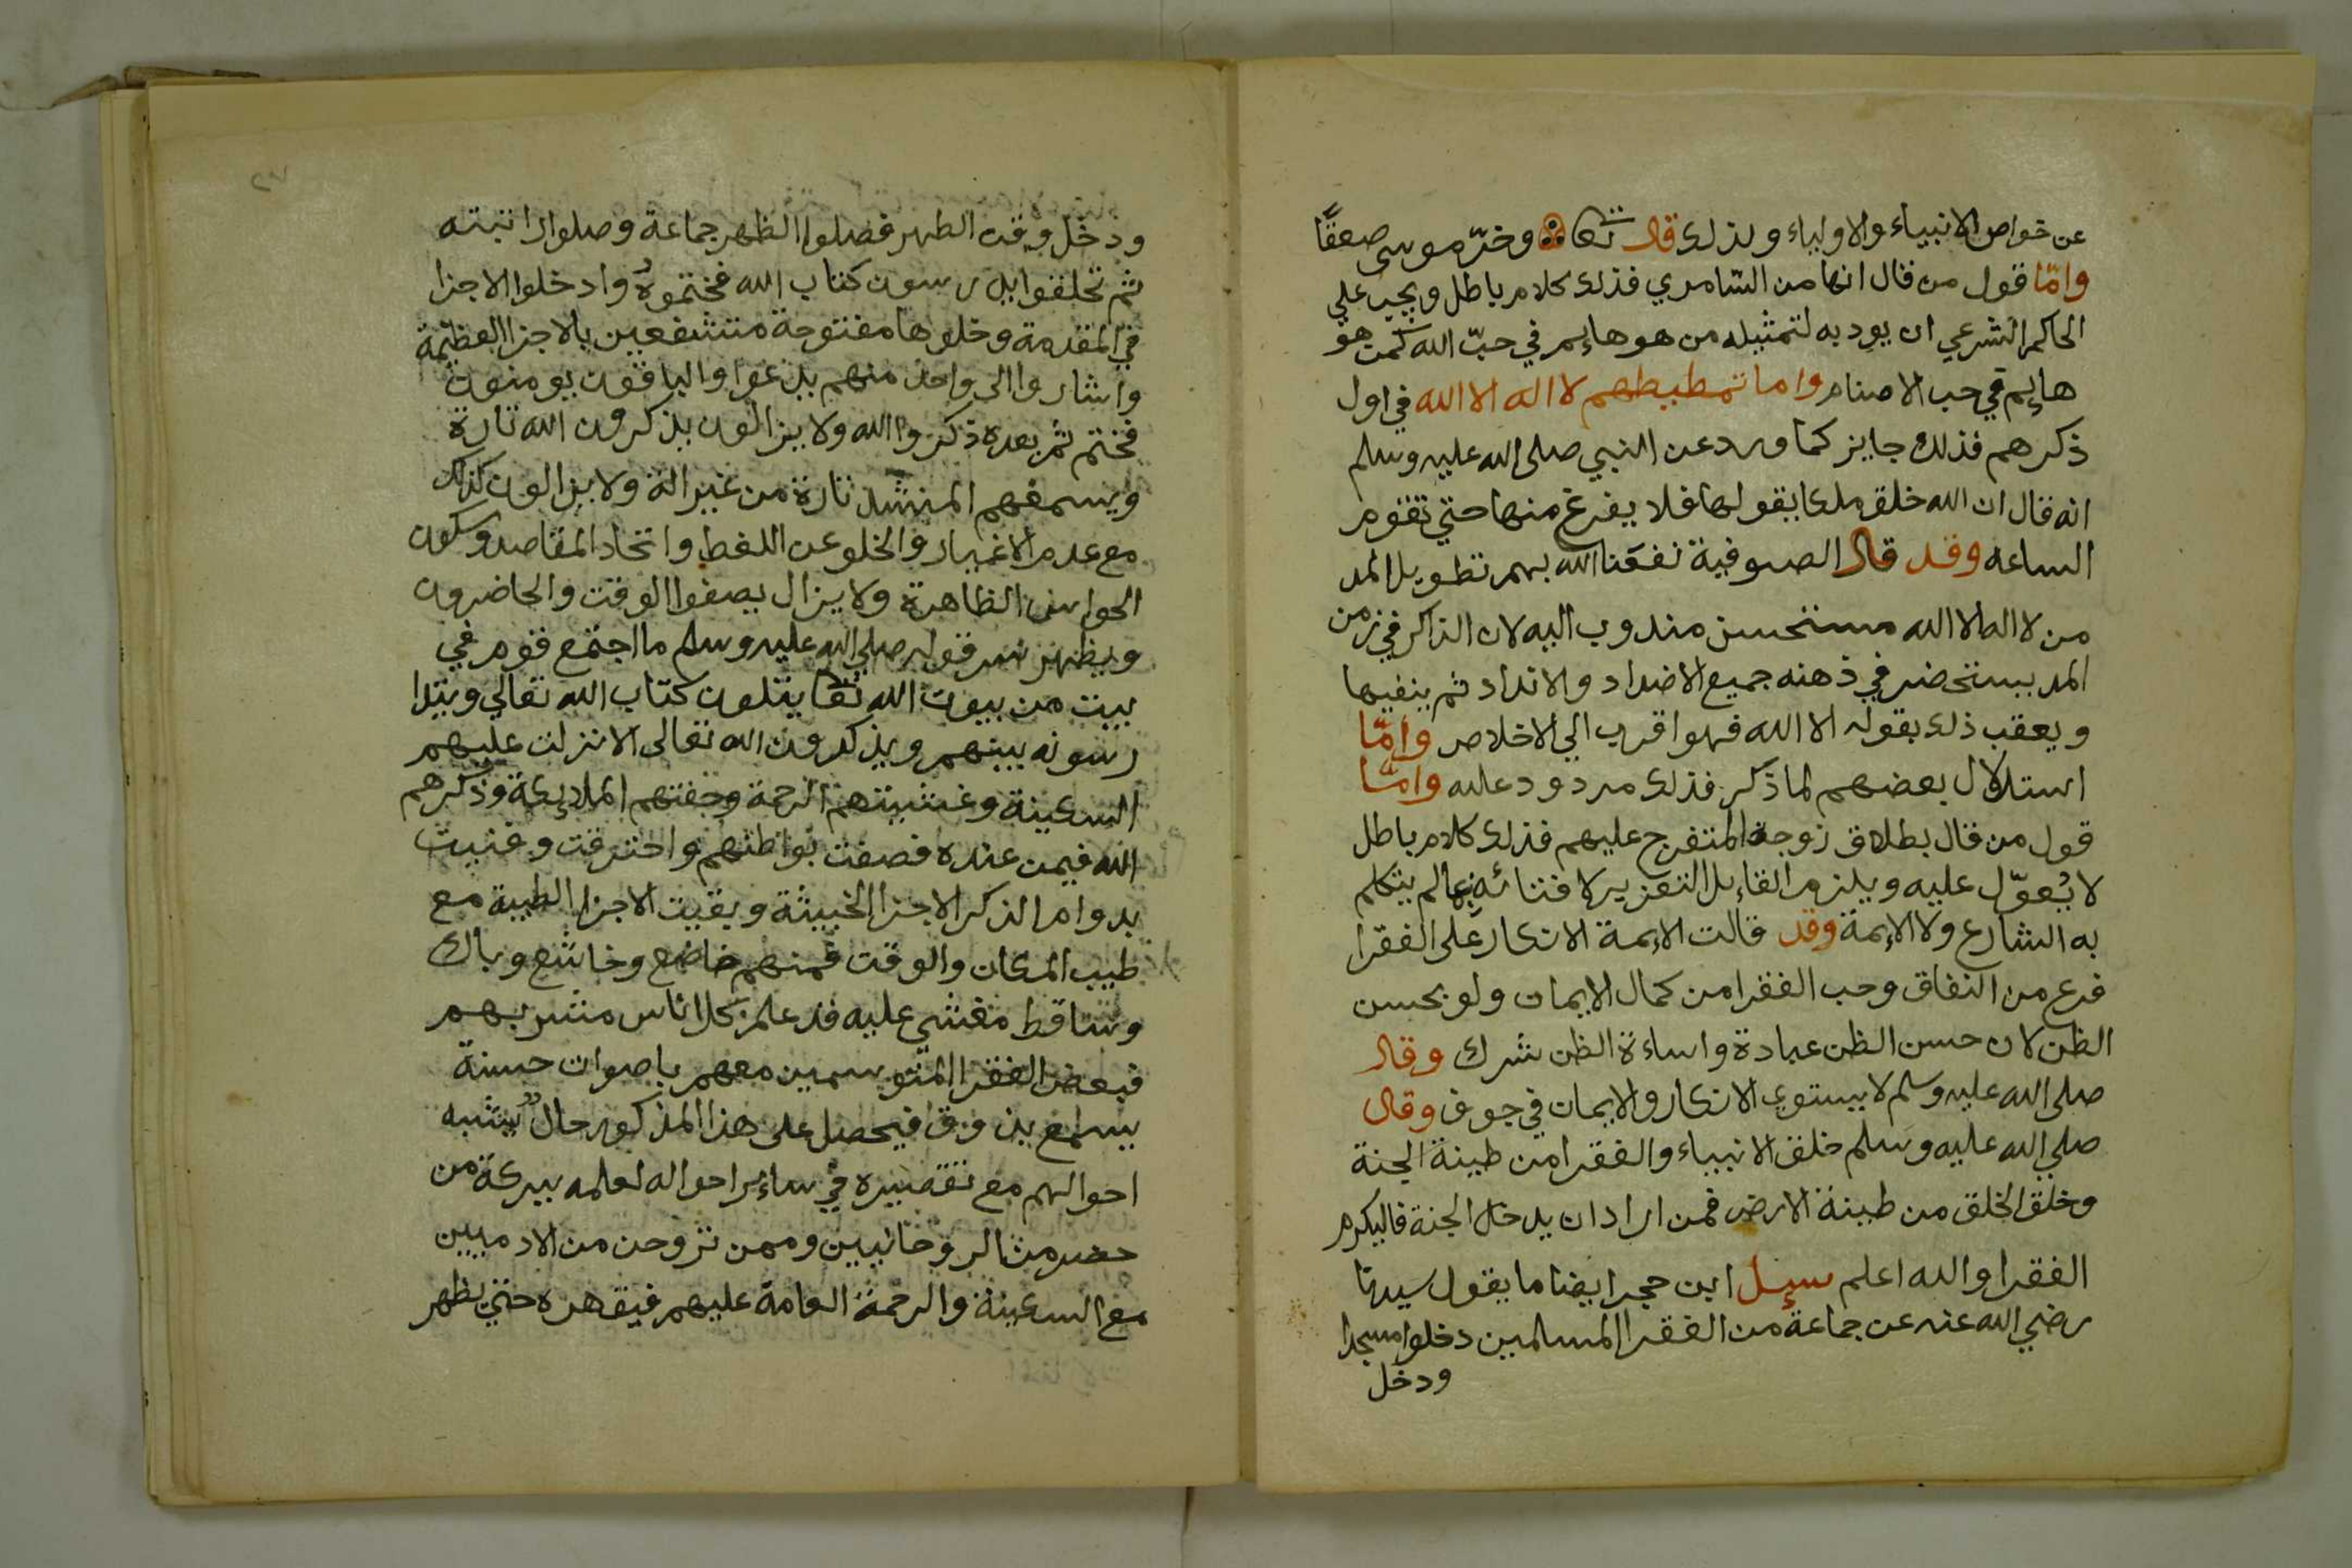 عن خواص الانبياء والاولياء ولذلك قال تعالى وخرّ موسى صعقًا
وامّا قول من قال انها من السّامري فذلك كلام باطل ويجب علي
الحاكم الشرعي ان يودبه لتمثيله من هو هايم في حبّ الله كمن هو
هايم في حب الاصنام واما تمطيطهم لا اله الا الله في اول
ذكرهم فذلك جايز كما ورد عن النبي صلى الله عليه وسلم
انه قال ان الله خلق ملكا يقولها فلا يفرغ منها حتي تقوم
الساعه وقد قال الصوفية نفعنا الله بهم تطويل المد
من لا اله الا الله مستحسن مندوب اليه لان الذاكر في زمن
المد يستحضر في ذهنه جميع الاضداد والانداد ثم ينفيها
ويعقب ذلك بقوله الا الله فهو اقرب الي الاخلاص وامّا
استدلال بعضهم لما ذكر فذلك مردود عليه وامّا
قول من قال بطلاق زوجة المتفرج عليهم فذلك كلام باطل
لا يُعوّل عليه ويلزم القاءيل التعزير لافتائه بمالم يتكلم
به الشارع ولا الايمة وقد قالت الايمة الانكار على الفقرا
فرع من النفاق وحب الفقرا من كمال الايمان ولو بحسن
الظن لان حسن الظن عبادة واساءة الظن شرك وقال
صلى الله عليه وسلم لا يستوي الانكار والايمان في جوف وقال
صلي الله عليه وسلم خلق الانبياء والفقرا من طينة الجنة
وخلق الخلق من طينة الارض فمن اراد ان يدخل الجنة فاليكرم
الفقرا والله اعلم سيل ابن حجر ايضا ما يقول سيدنا
رضي الله عنه عن جماعة من الفقرا المسلمين دخلوا مسجدا
ودخل
ودخل وقت الظهر فصلوا الظهر جماعة وصلوا راتبته
ثم تحلقوا يدرسون كتاب الله فختموهُ وادخلوا الاجزا
في المقدمة وخلوها مفتوحة متشفعين بالاجزا العظيمة
واشاروا الى واحد منهم يدعوا والباقون يومنون
فختم ثم بعده ذكروا الله ولا يزالون يذكرون الله تارة
ويسمعهم المنشد تارة من غير الة ولا يزالون كذلك
مع عدم الاغيار والخلو عن اللغط واتحاد المقاصد وسكون
الحواس الظاهرة ولا يزال يصفوا الوقت والحاضرون
ويظهر سر قوله صلي الله عليه وسلم ما اجتمع قوم في
بيت من بيوت الله تعا يتلون كتاب الله تعالي ويتدا
رسونه بينهم ويذكرون الله تعالى الا نزلت عليهم
السكينة وغشيتهم الرحمة وحفتهم الملايكة وذكرهم
الله فيمن عنده فصفت بواطنهم واحترقت وفنيت
بدوام الذكر الاجزا الخبيثة وبقيت الاجزا الطيبة مع
طيب المكان والوقت فمنهم خاضع وخاشع وباك
وساقط مغشي عليه قد علم كل اناس مشربهم
فبعض الفقرا المتوسمين معهم باصوات حسنة
يسامع بذوق فيحصل على هذا المذكور حال يشبه
احوالهم مع تقصيره في سائر احواله لعلمه ببركة من
حضر من الروحانيين وممن تروحن من الادميين
مع السكينة والرحمة العامة عليهم فيقهره حتي يظهر